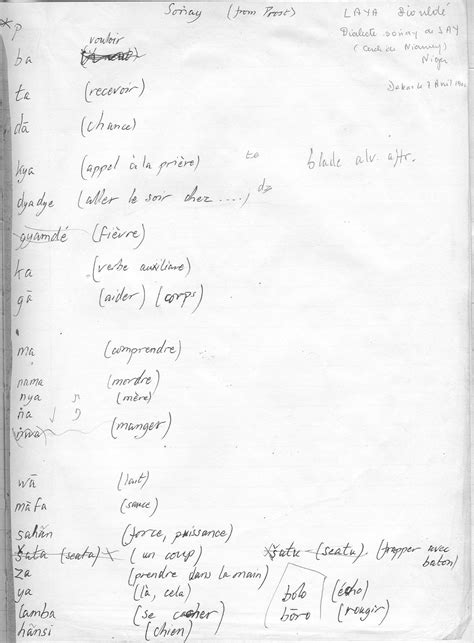 Soŋay (from Prost) LAYA Diouldé
Dialecte soŋay de SAY
(Cercle de Niamey)
Niger
Dakar le 7 Avril
*p
vouloir
ba
ta (recevoir)
dã (chance)
kya (appel à la prière) blade alv. affr.
dyadye (aller le soir chez ....) dz
gyamdé (fièvre)
ka (verbe auxiliaire)
gã (aider) (corps)
ma (comprendre)
nama (mordre)
nya (mère)
ŋa (manger)
wã (lait)
mãfa (sauce)
sahãn (force, puissance)
šata (seata) (un coup) šatu (seatu) (frapper avec bâton)
za (prendre dans la main)
ya (là, cela) bolo (écho)
lamba (se cacher) bõro (rougir)
hãnsi (chien)